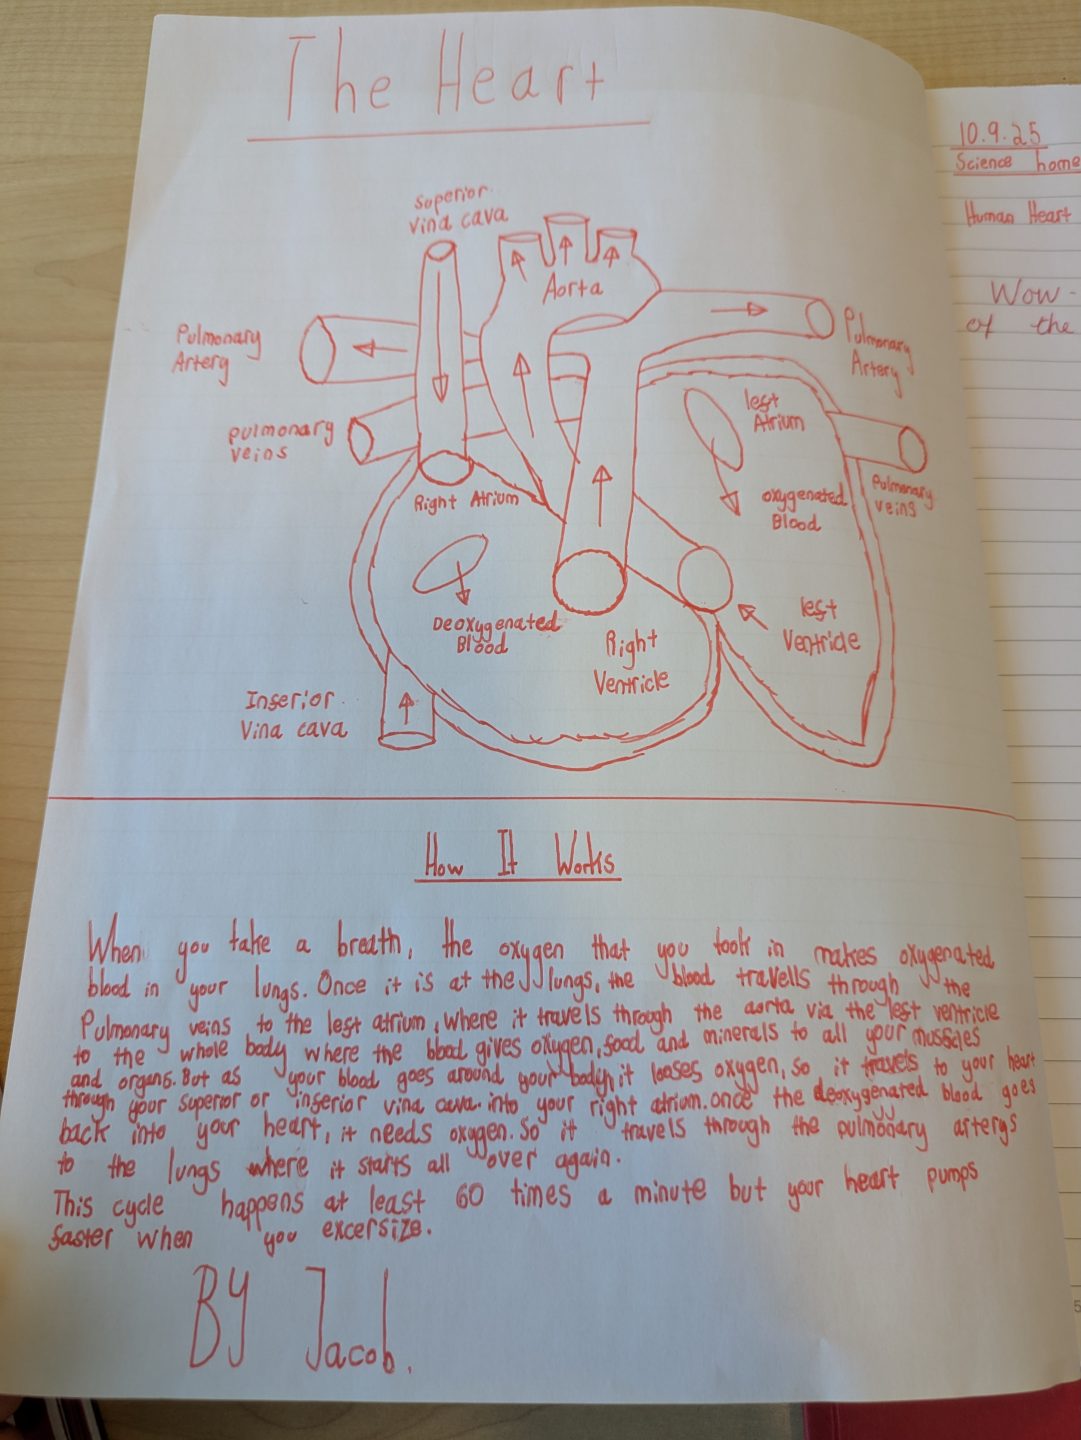 The Heart
10.9.25
Science home
Human Heart
Wow -
of the
Superior
vina cava
Aorta
Pulmonary
Artery
Pulmonary
Artery
pulmonary
veins
left
Atrium
Right Atrium
oxygenated
Blood
Pulmonary
veins
Deoxygenated
Blood
Right
Ventricle
left
Ventricle
Inferior
Vina cava
How It Works
When you take a breath, the oxygen that you took in makes oxygenated
blood in your lungs. Once it is at the lungs, the blood travells through the
Pulmonary veins to the left atrium, where it travels through the aorta via the left ventricle
to the whole body where the blood gives oxygen, food and minerals to all your muscles
and organs. But as your blood goes around your body, it looses oxygen, so it travels to your heart
through your superior or inferior vina cava. into your right atrium. once the deoxygenared blood goes
back into your heart, it needs oxygen. So it travels through the pulmonary arterys
to the lungs where it starts all over again.
This cycle happens at least 60 times a minute but your heart pumps
faster when you excersize.
BY Jacob.